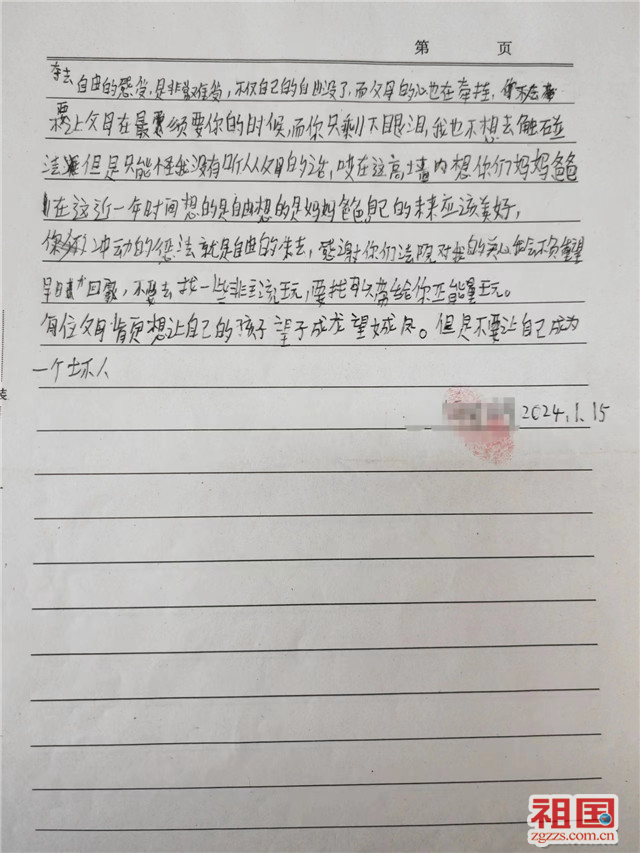 第 页
夺去自由的感受,是非常难受,不仅自己的自由没了,而父母的心也在牵挂,
要之父母在最需要你的时候,而你只剩下眼泪,我也不想去触碰
法律但是只能怪我没有听从父母的话,哎在这高墙内想你们妈妈爸爸
在这近一年时间想的是自由想的是妈妈爸爸自己的未来应该美好,
冲动的想法就是自由的失去,感谢你们法院对我的关心我会不负重望
早日 回家,不要去找一些非主流玩,要找 带给你正能量玩。
每位父母皆更想让自己的孩子望子成龙望女成凤。但是不要让自己成为
一个坏人
2024.1.15
装
祖国
zgzzs.com.cn